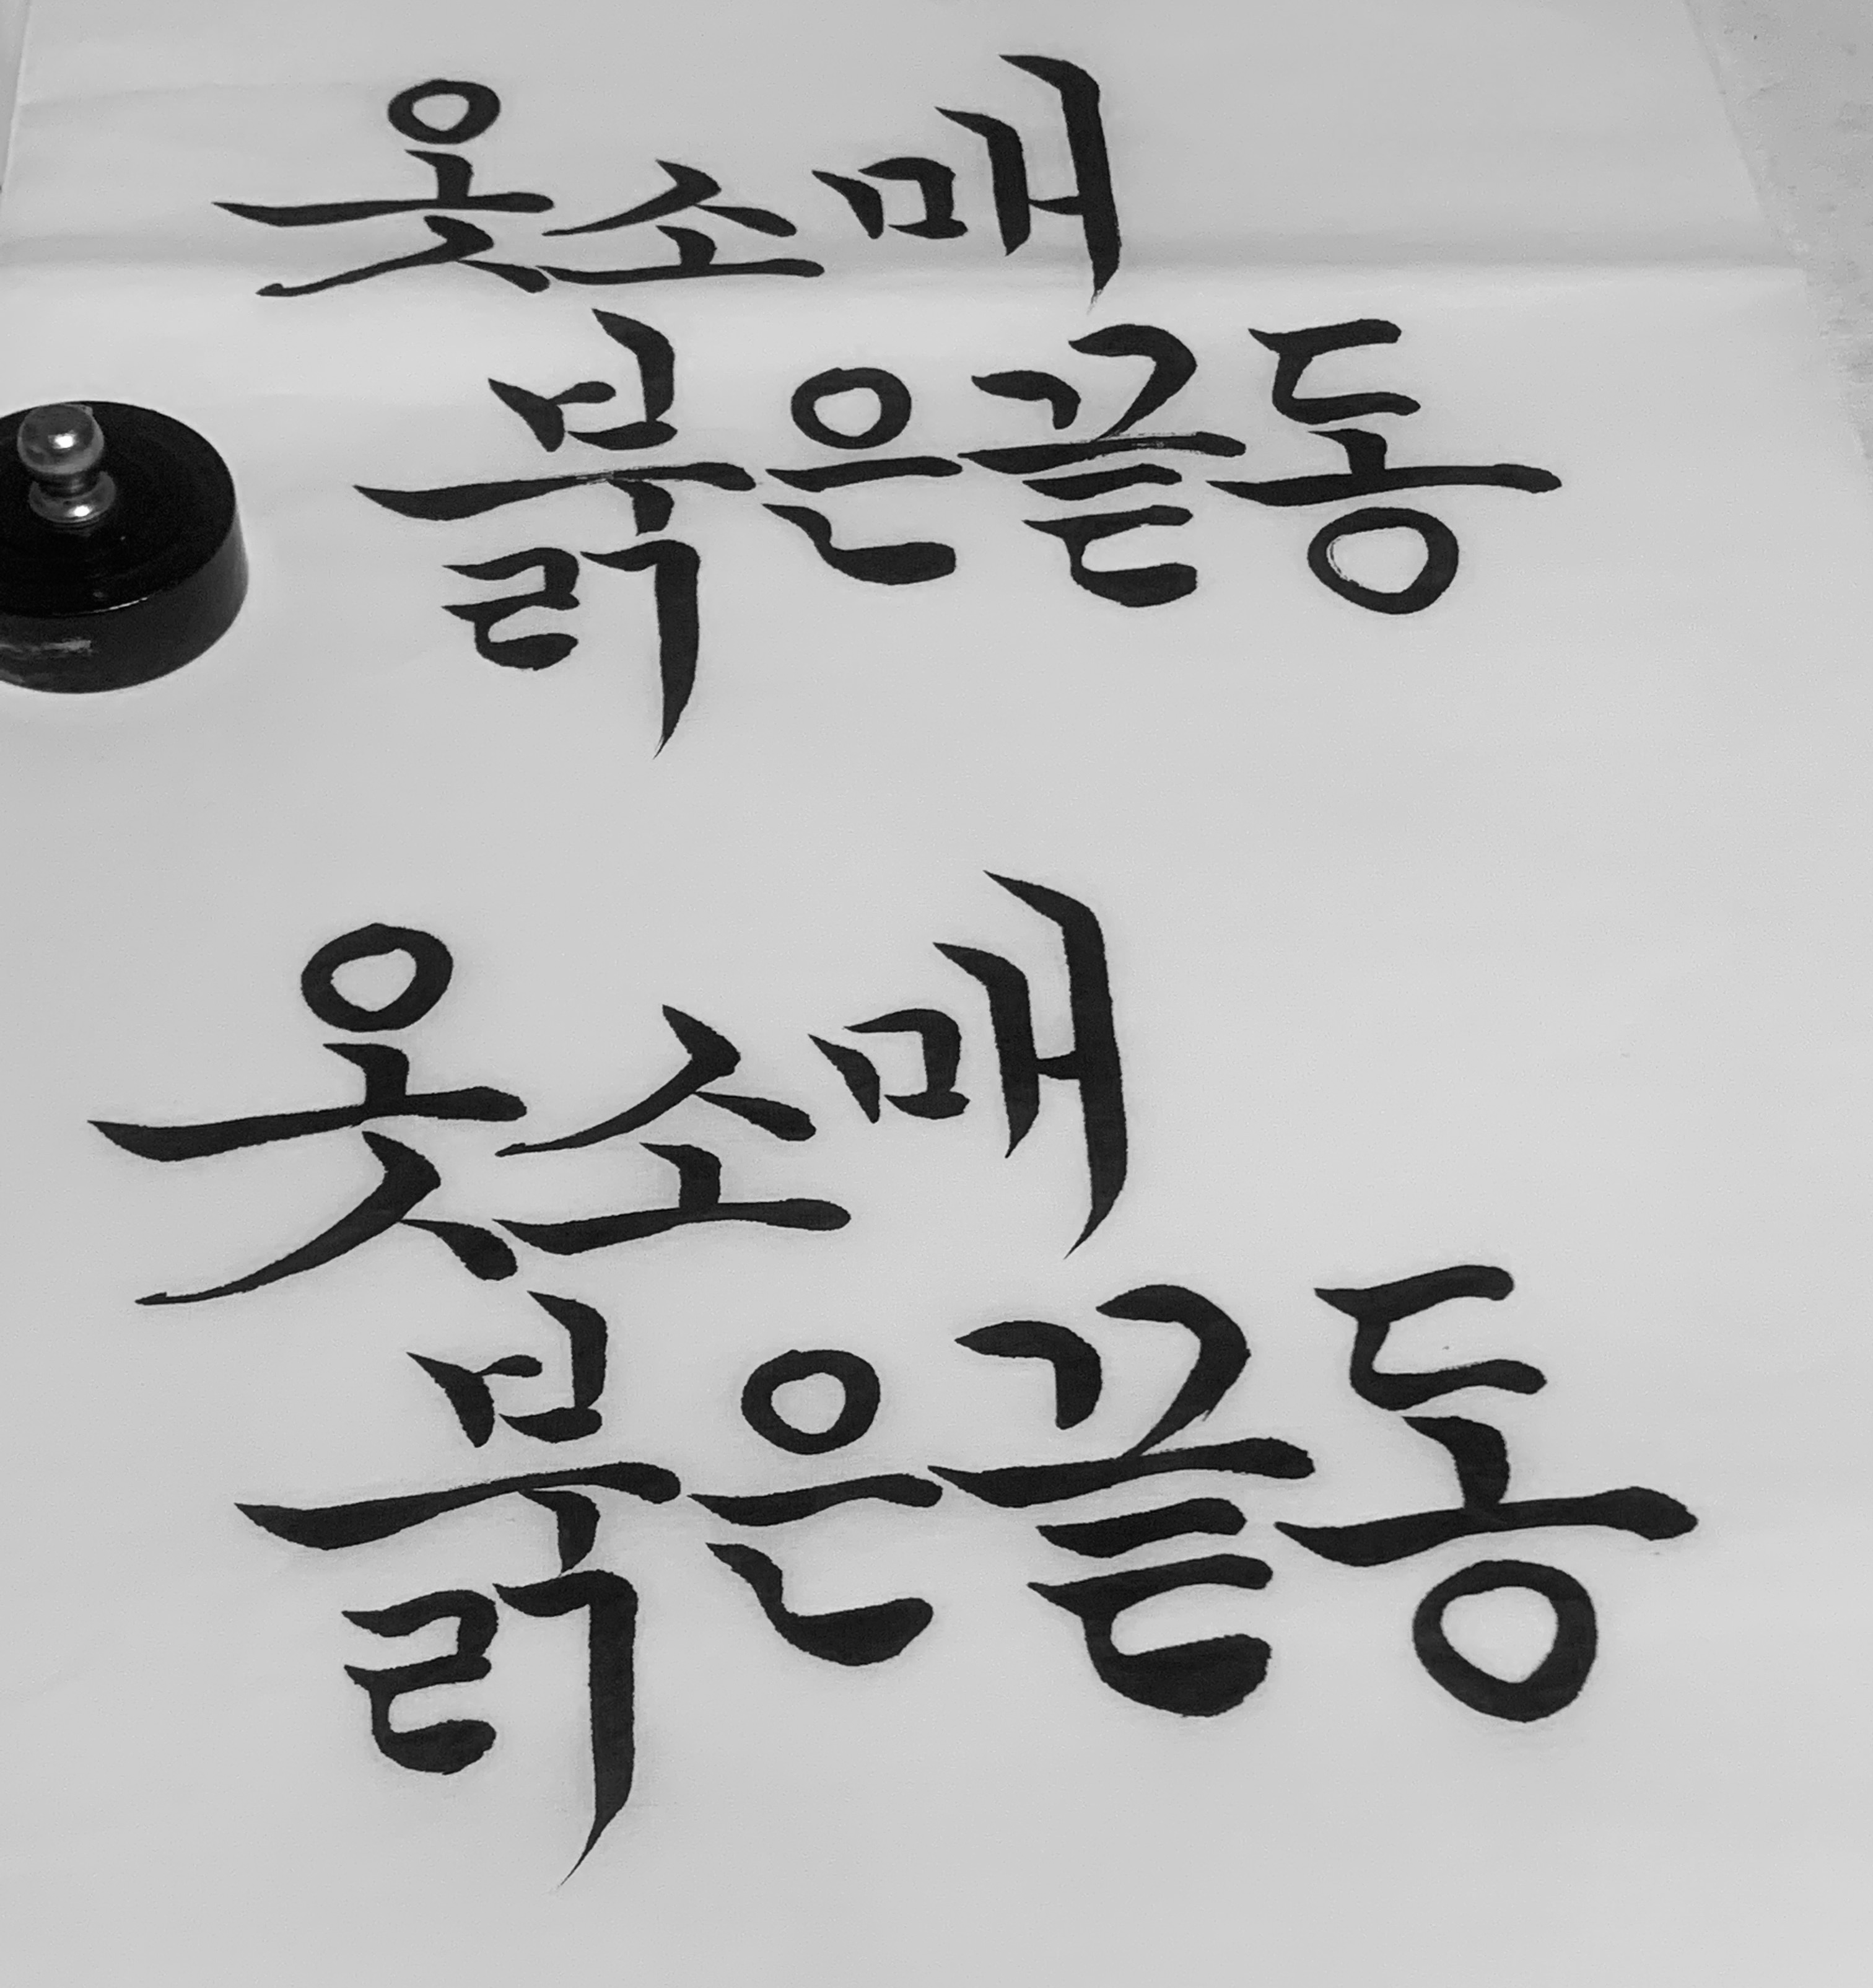 옷소매
붉은끝동
옷소매
붉은끝동